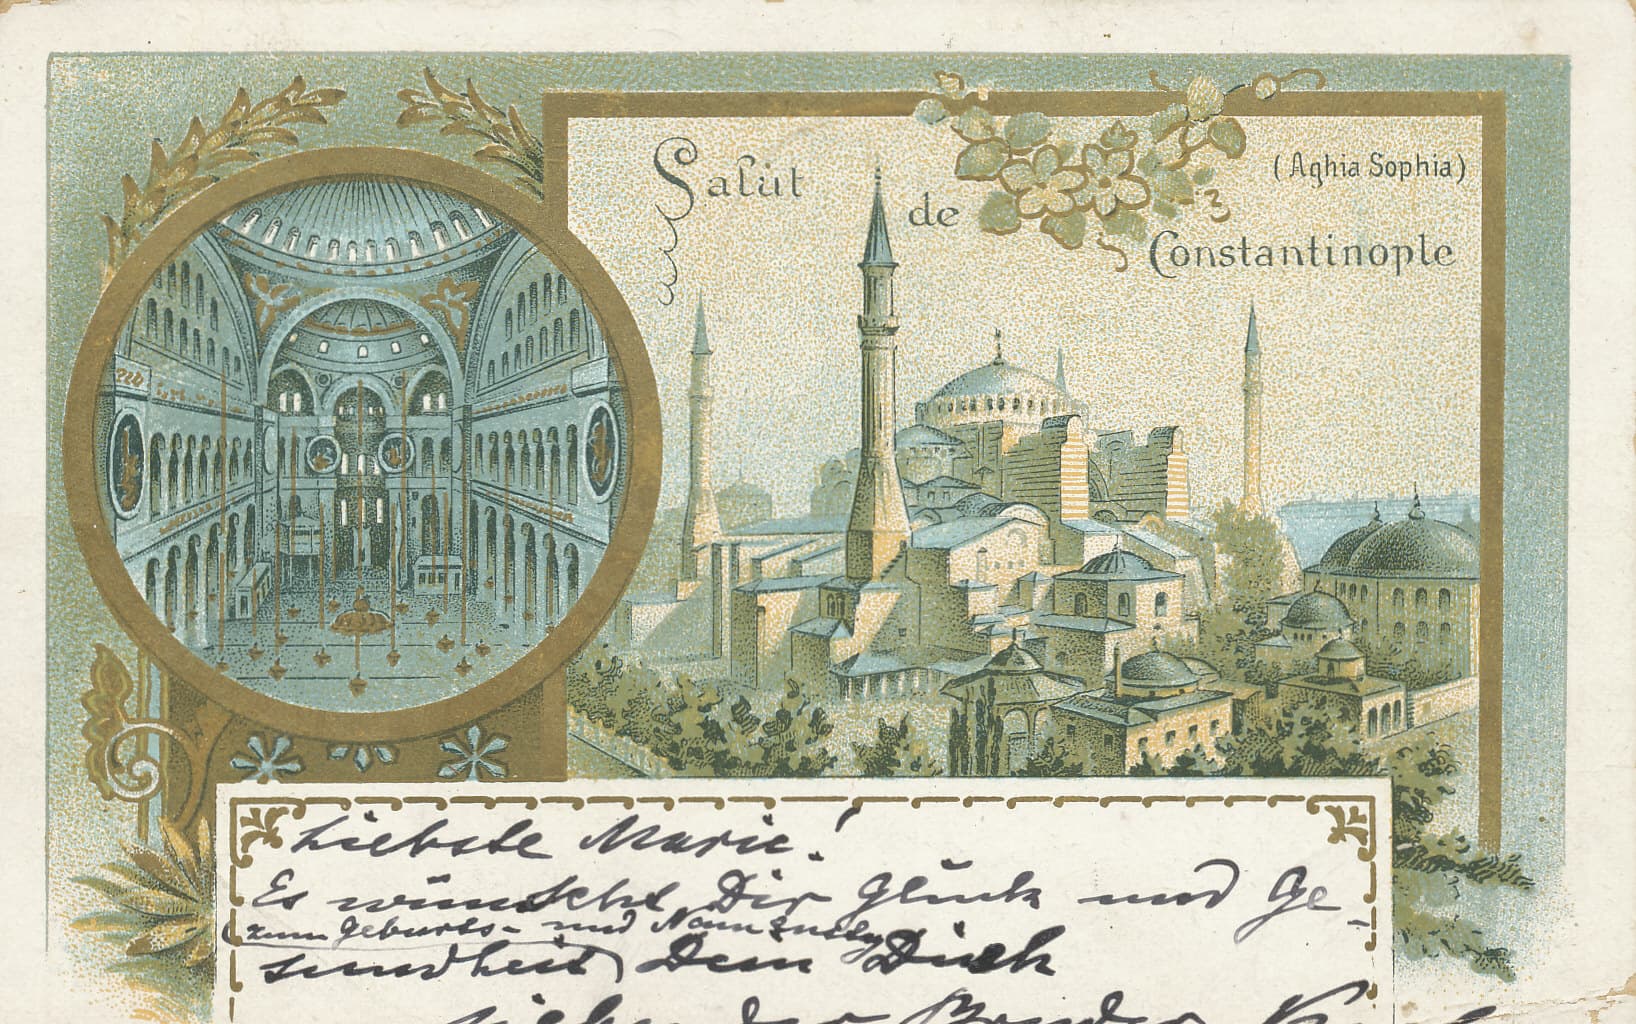 Salut
de
Constantinople
(Aghia Sophia)
Liebste Marie!
Es wünscht Dir Glück und Ge-
(zum Geburts- und
sundheit) Dein Dich
der Bruder